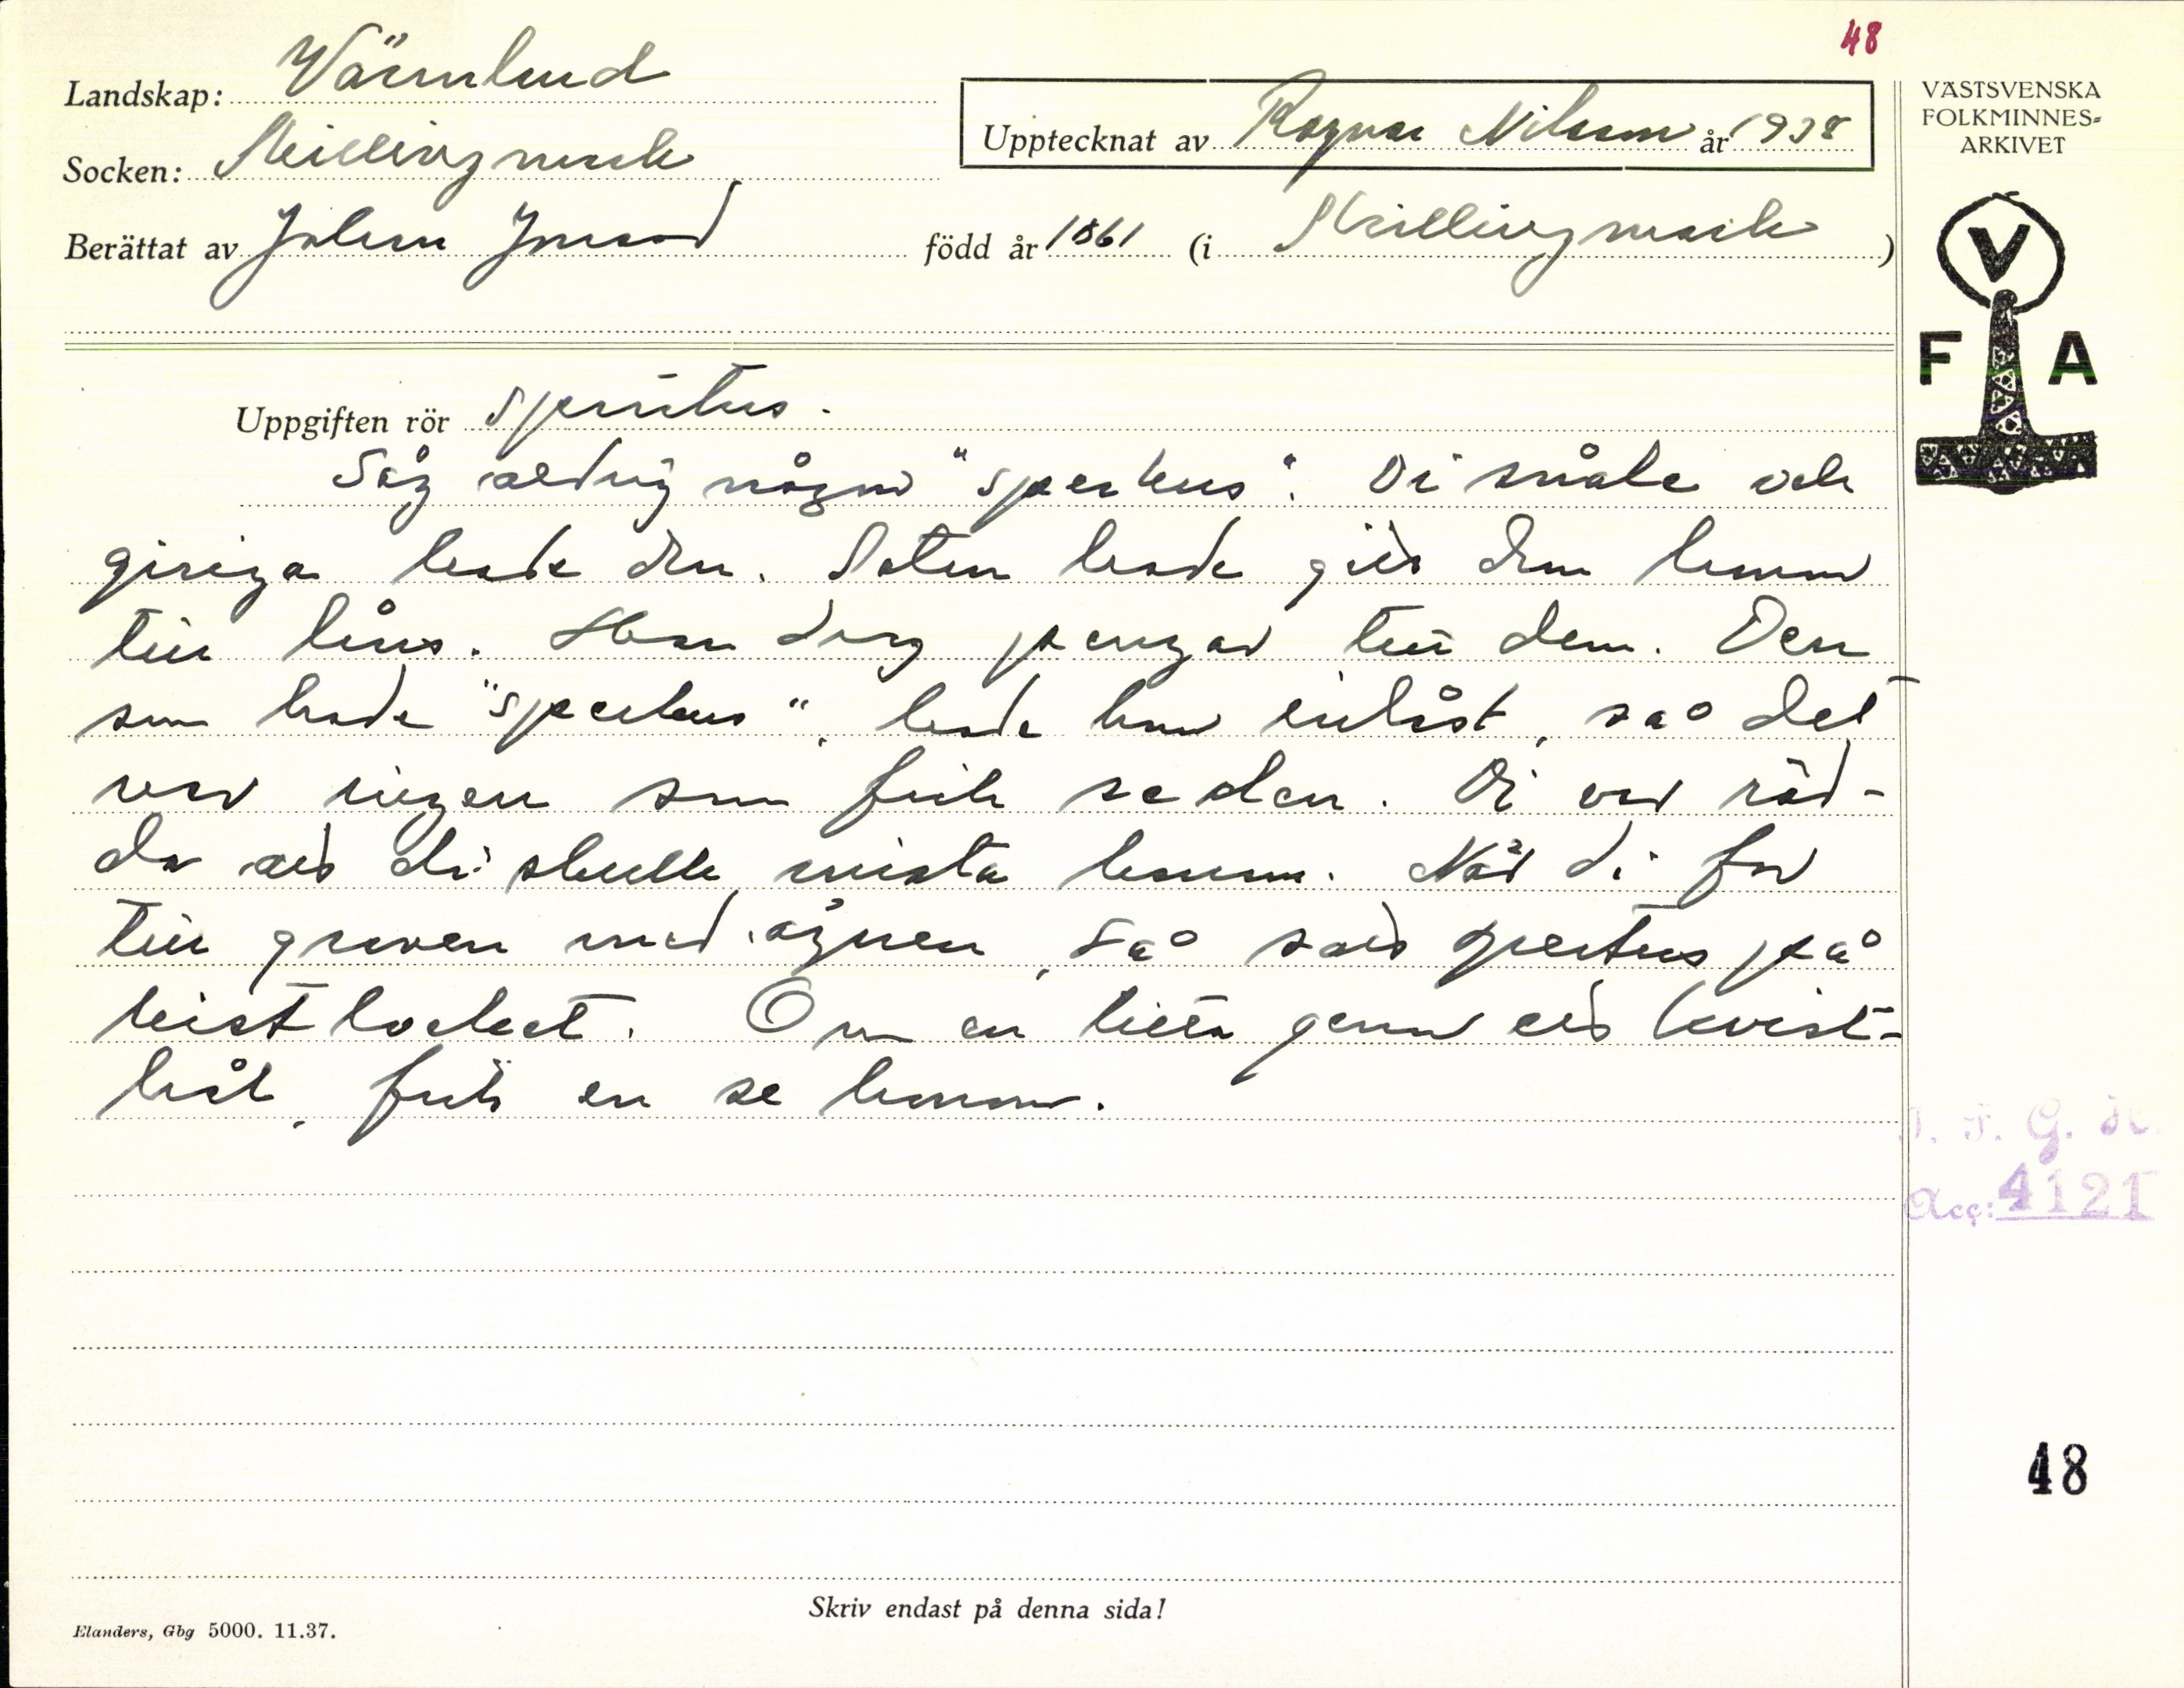 48
Landskap: Värmland
Upptecknat av Ragnar Nilsson år 1938
VÄSTSVENSKA
FOLKMINNES=
ARKIVET
Socken: Skillingmark
Berättat av Johan född år 1861 (i Skillingmark)
V
F A
Uppgiften rör spiritus.
Såg aldrig någon "spertus". Di snåle och
giriga hade den. Satan hade gitt dem honom
till låns. Han drog pengar till dem. Den
som hade "spertus", hade han inlåst, så det
var ingen som fick se den. Di var räd-
da att di skulle mista honom. När di for
till graven med ägaren, så satt spertus på
kistlocket. Om en titta genom ett kvist-
hål, fick en se honom.
Acc: 4121
48
Skriv endast på denna sida!
Elanders, Gbg 5000. 11.37.